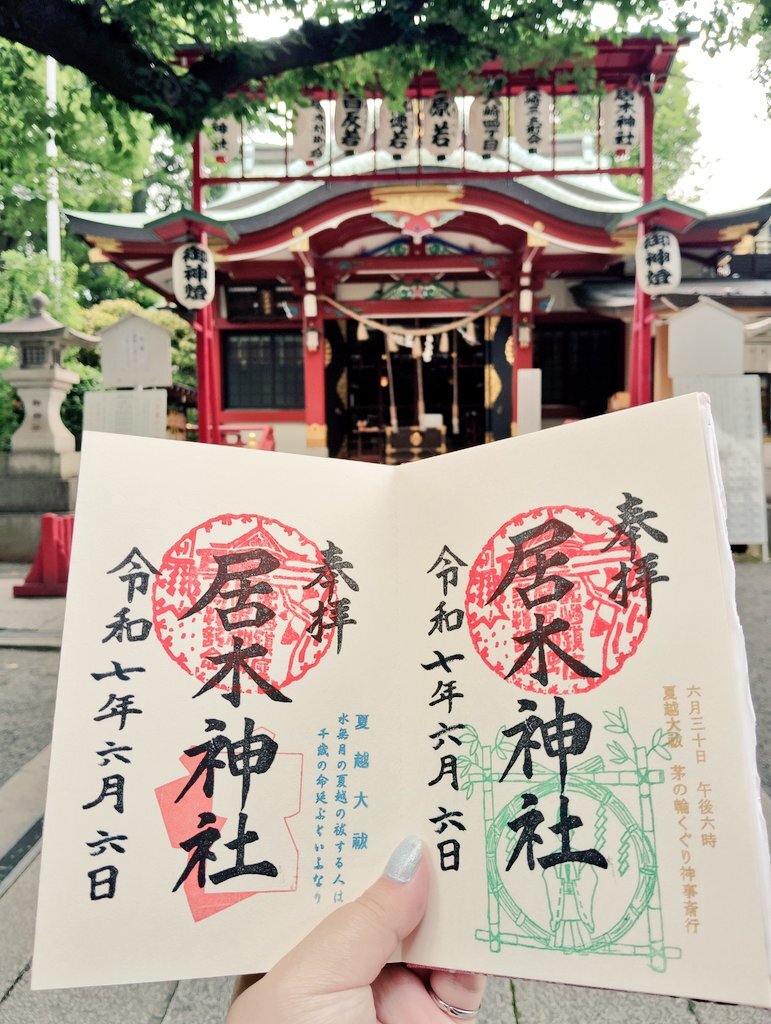 居木神社
大崎四丁目
原若
徳若
御神燈
御神燈
奉拝
居木神社
令和七年六月六日
六月三十日　午後六時
夏越大祓　茅の輪くぐり神事斎行
奉拝
居木神社
令和七年六月六日
夏越大祓
水無月の夏越の祓する人は
千歳の命延ぶといふなり